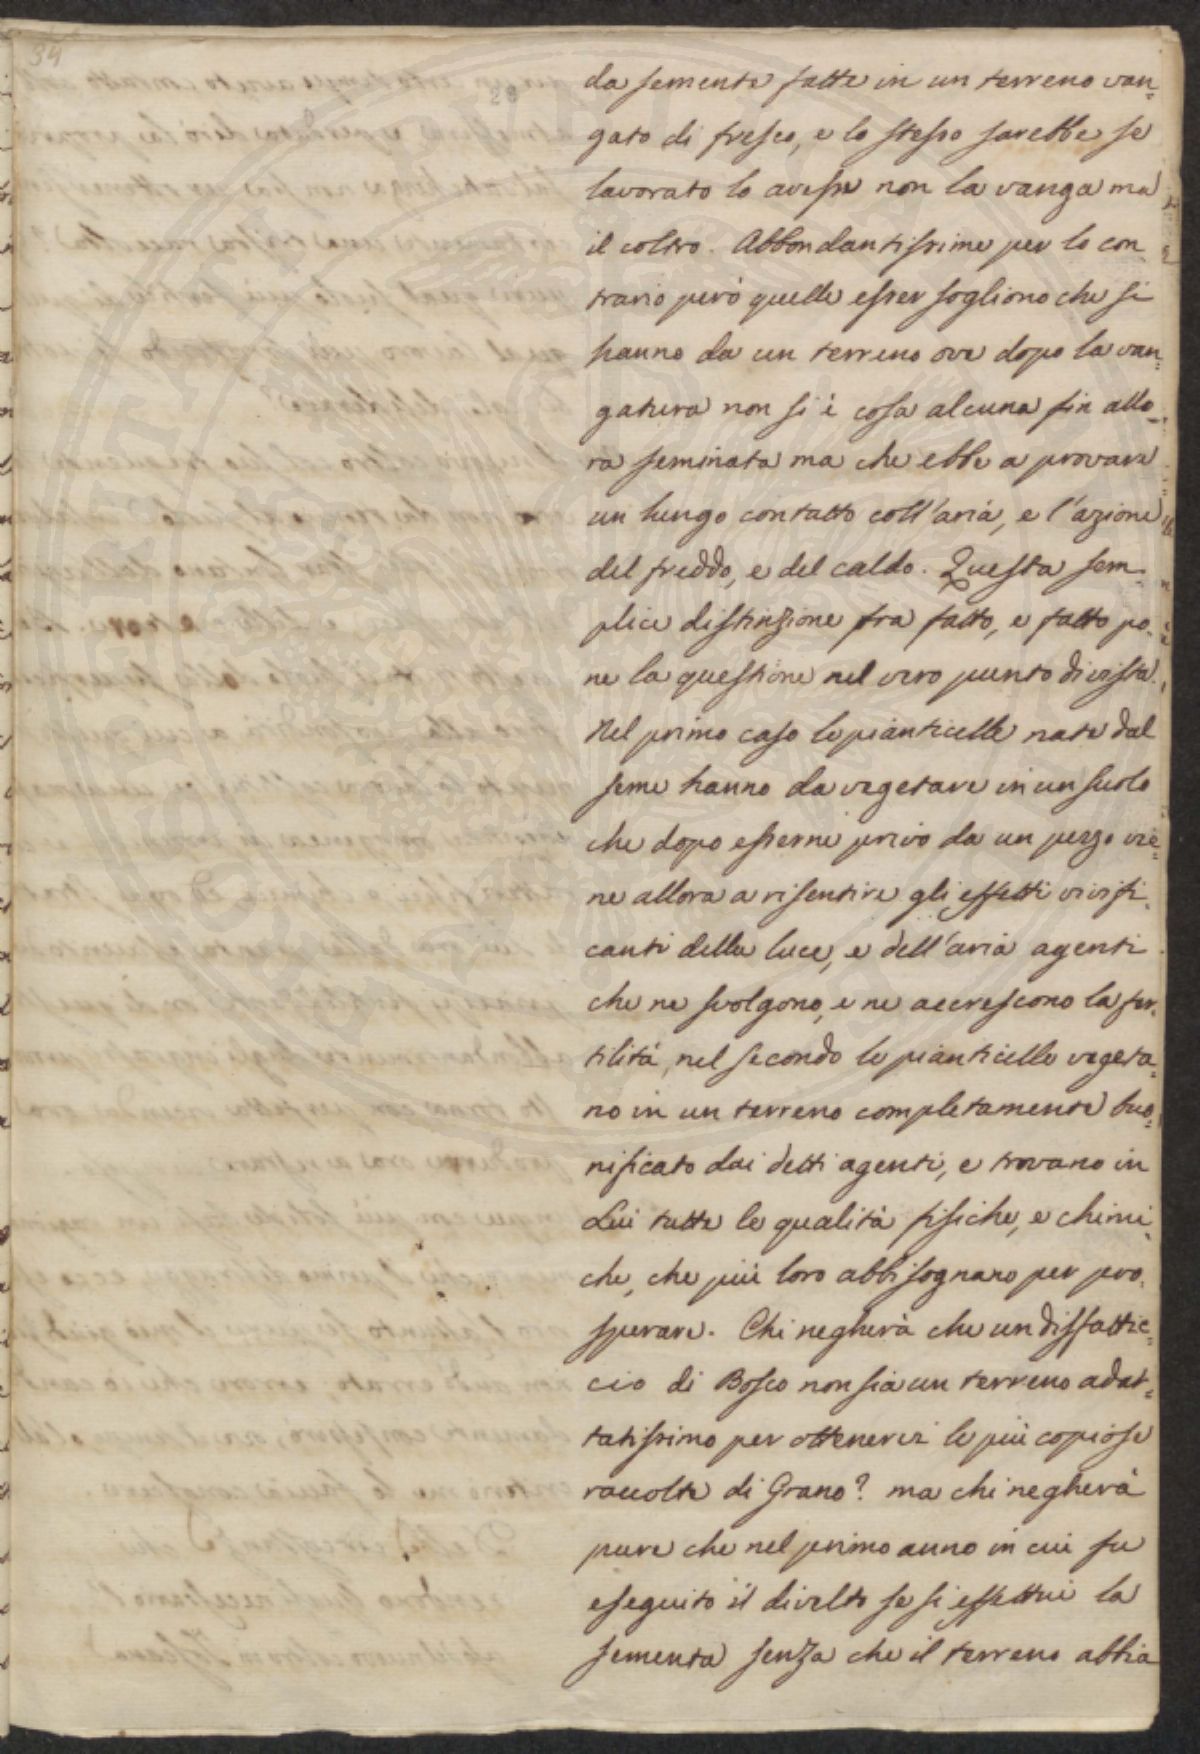 34
da semente fatte in un terreno van=
gato di fresco, e lo stesso sarebbe se
lavorato lo avesse non la vanga ma
il coltro. Abbondantissime per lo con
trario però quelle esser sogliono che si
hanno da un terreno ove dopo la van=
gatura non si è cosa alcuna fin allo=
ra seminata ma che ebbe a provare
un lungo contatto coll'aria, e l'azione
del freddo, e del caldo. Questa sem=
plice distinzione fra fatto, e fatto po=
ne la questione nel vero punto di vista.
Nel primo caso le pianticelle nate dal
seme hanno da vegetare in un suolo
che dopo esserne privo da un pezzo vie=
ne allora a risentire gli effetti vivifi=
canti della luce, e dell'aria agenti
che ne svolgono, e ne accrescono la fer=
tilità, nel secondo le pianticelle vegeta=
no in un terreno completamente buo=
nificato dai detti agenti, e trovano in
Lui tutte le qualità fisiche, e chimi=
che, che più loro abbisognano per pro=
sperare. Chi negherà che un disfattic=
cio di Bosco non sia un terreno adat=
tatissimo per ottenervi le più copiose
raccolte di Grano? ma chi negherà
pure che nel primo anno in cui fu
eseguito il divelto se si effettui la
sementa senza che il terreno abbia